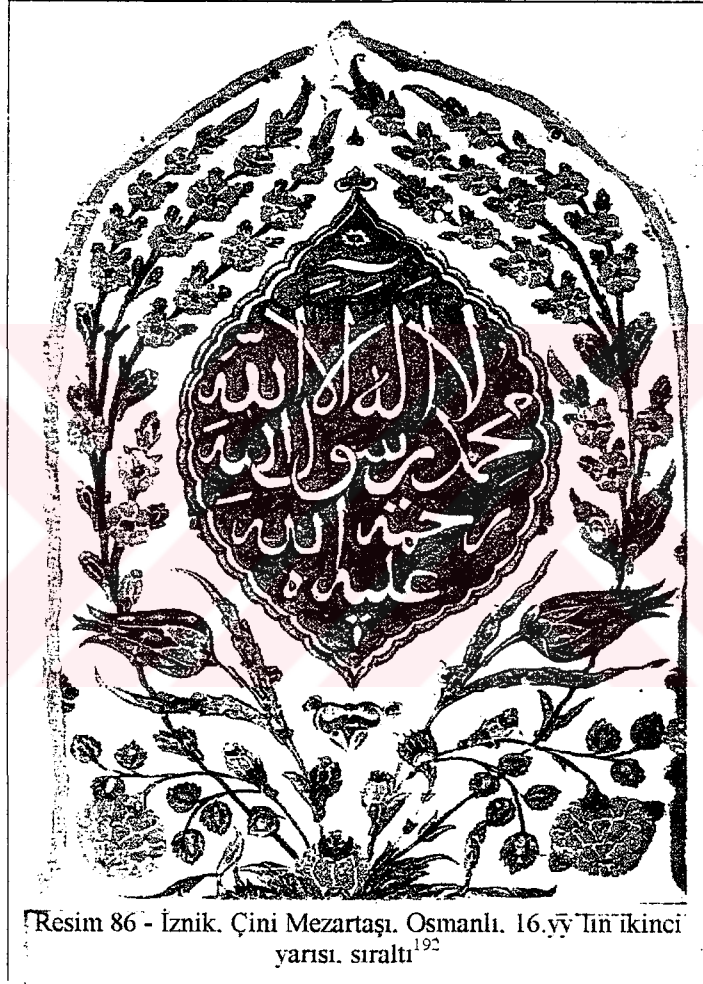 لا اله الا الله
محمد رسول الله
رحمة الله
عليه
Resim 86 - İznik. Çini Mezartaşı. Osmanlı. 16.yy'lın ikinci
yarısı. sıraltı192